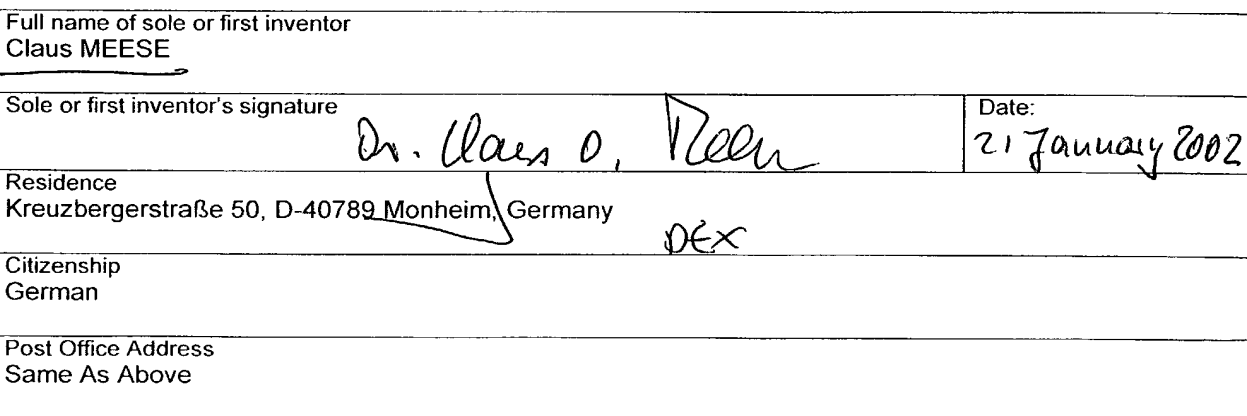 Full name of sole or first inventor
Claus MEESE
Sole or first inventor's signature
Dr. Claus O. Meese
Date:
21 January 2002
Residence
Kreuzbergerstraße 50, D-40789 Monheim, Germany
DEX
Citizenship
German
Post Office Address
Same As Above